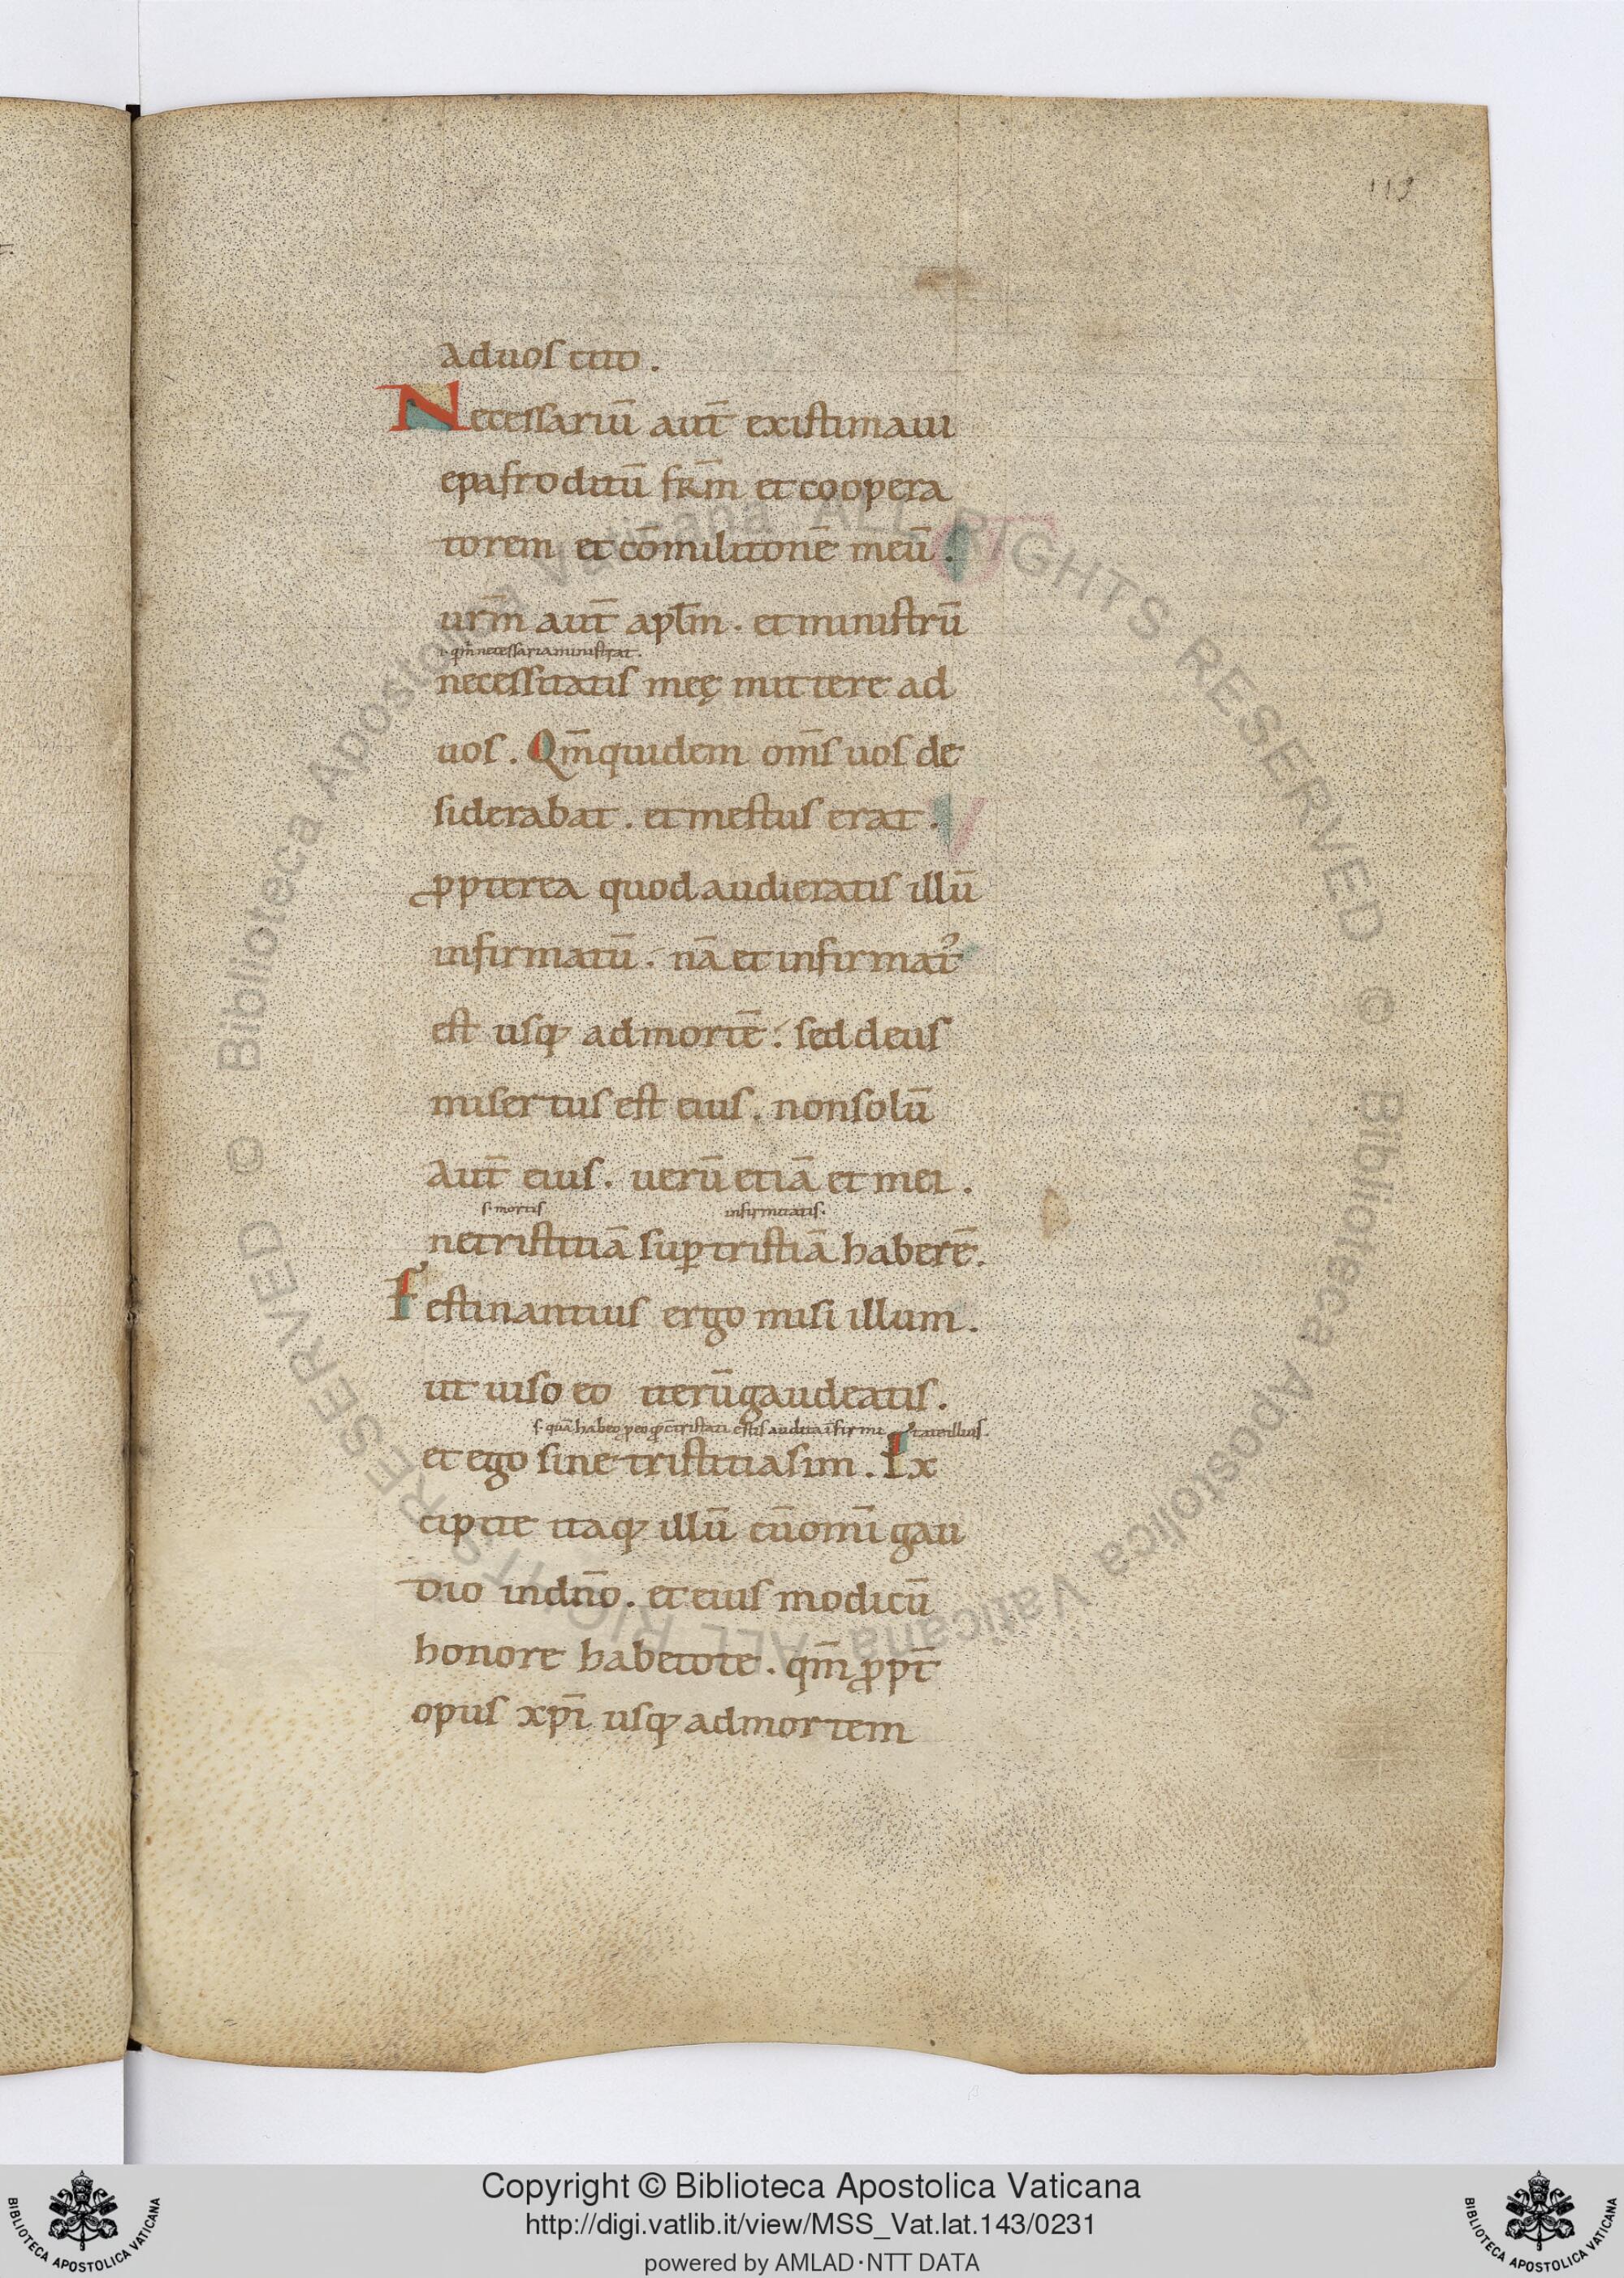 113
ad uos cito .
Necessariū aut̄ existimaui
epafroditū fr̄m et coopera
torem et cōmilitonē meū .
ur̄m aut̄ apl̄m . et ministrū
i. qm̄ necessaria ministrat .
necessitatis meę mittere ad
uos . Qm̄ quidem om̄s uos de
siderabat . et mestus erat .
ꝓpterea quod audieratis illū
infirmatū . nā et infirmatꝰ
est usq; ad mortē . sed deus
misertus est eius . non solū
aut̄ eius . uerū etiā et mei .
s. mortis infirmitatis .
ne tristitiā suꝑ tristiā haberē .
Festinantius ergo misi illum .
ut uiso eo iterū gaudeatis .
et ego sine tristitia sim . Ex
cipite itaq; illū cū om̄i gau
dio in dn̄o . et eius modi cū
honore habetote . qm̄ ꝓpt̄
opus xp̄i usq; ad mortem
© Biblioteca Apostolica Vaticana ALL RIGHTS RESERVED
© Biblioteca Apostolica Vaticana ALL RIGHTS RESERVED
Copyright © Biblioteca Apostolica Vaticana
http://digi.vatlib.it/view/MSS_Vat.lat.143/0231
powered by AMLAD·NTT DATA
BIBLIOTECA APOSTOLICA VATICANA
BIBLIOTECA APOSTOLICA VATICANA